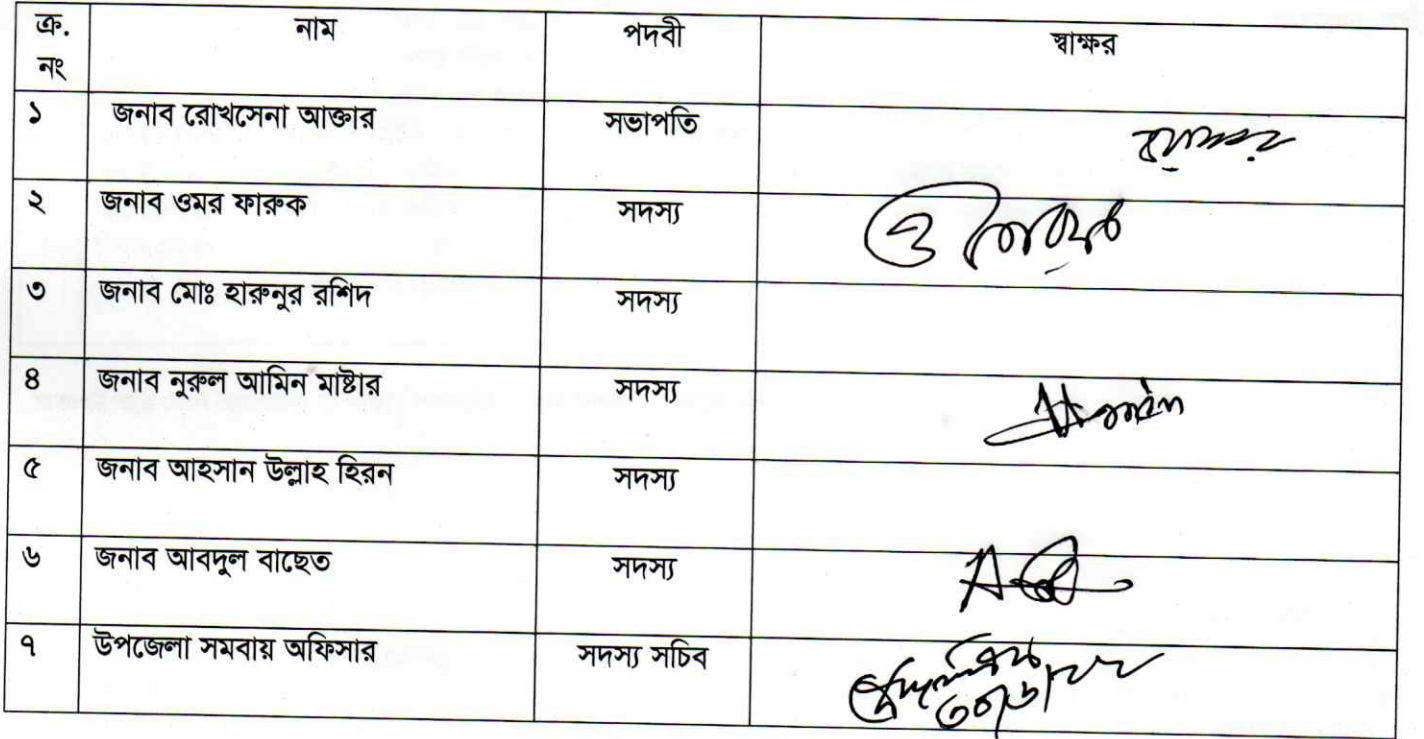 ক্র. নং নাম পদবী স্বাক্ষর
১ জনাব রোখসেনা আক্তার সভাপতি
২ জনাব ওমর ফারুক সদস্য
৩ জনাব মোঃ হারুনুর রশিদ সদস্য
৪ জনাব নুরুল আমিন মাষ্টার সদস্য
৫ জনাব আহসান উল্লাহ হিরন সদস্য
৬ জনাব আবদুল বাছেত সদস্য
৭ উপজেলা সমবায় অফিসার সদস্য সচিব